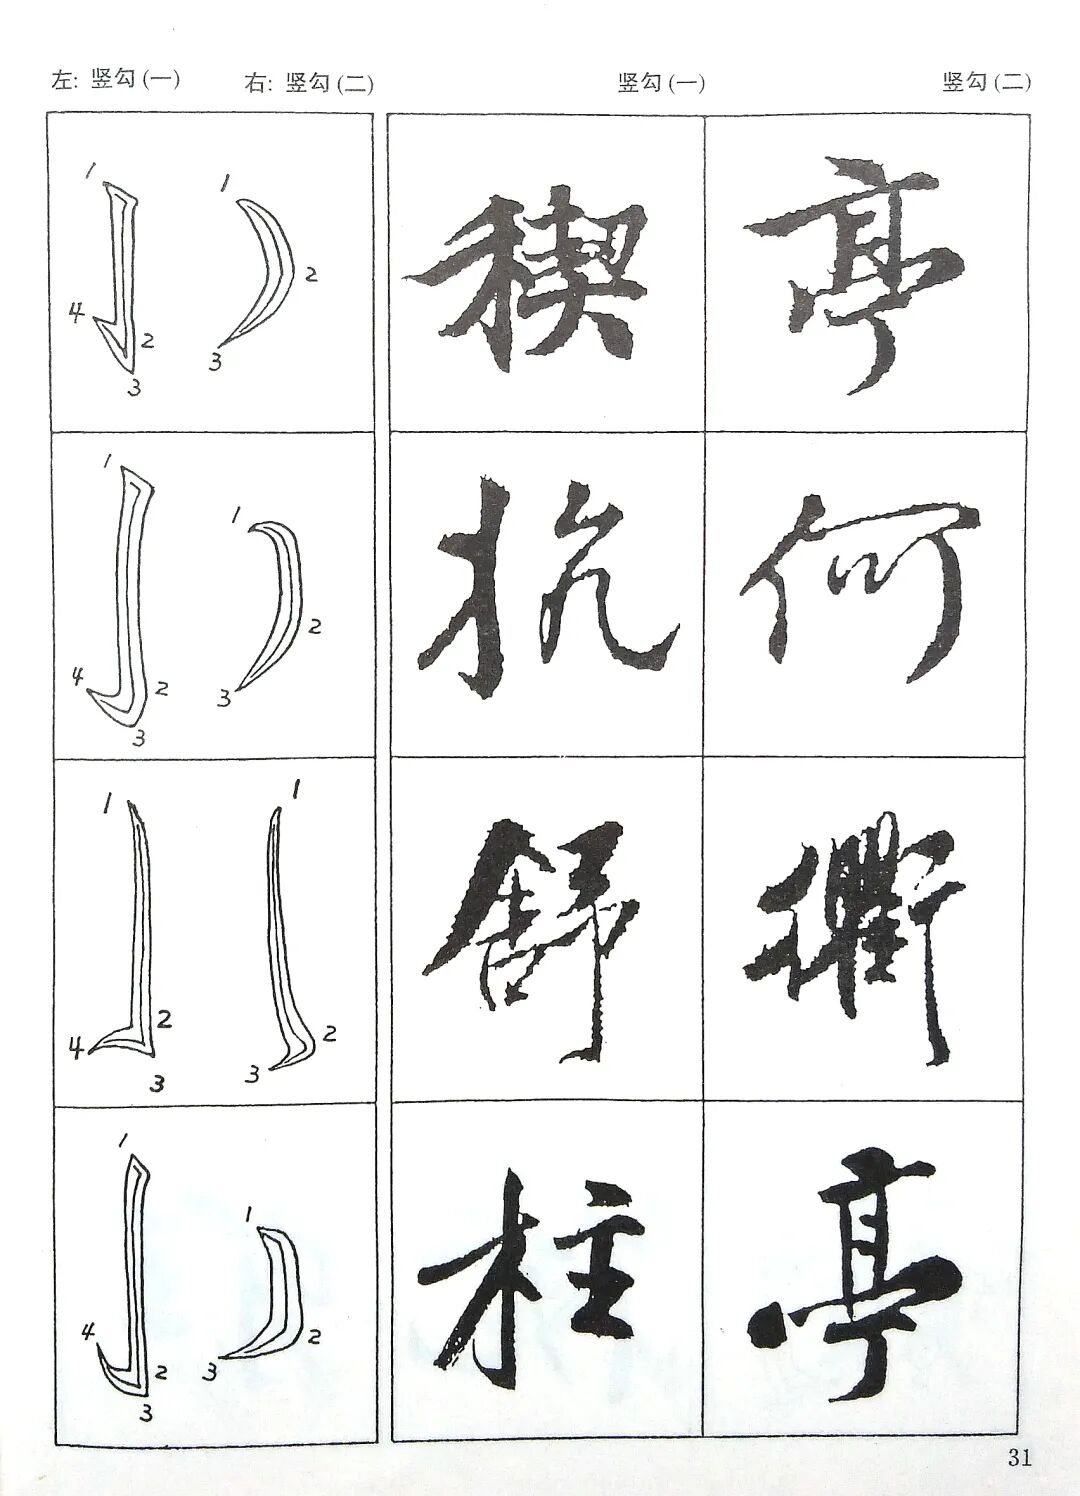 左: 竖勾(一) 右: 竖勾(二) 竖勾(一) 竖勾(二)
1 1
2
4 2
3 3
稧 亭
1
1
2
4 2 3
3
抗 何
1 1
2 2
4 3
3
舒 衢
1
1
4 2
2 3
3
柱 亭
31